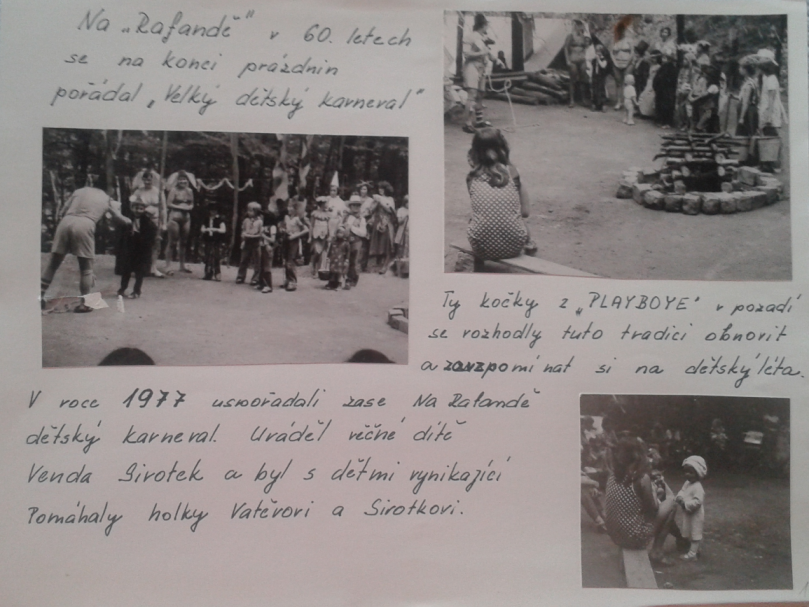 Na „Rafandě" v 60. letech
se na konci prázdnin
pořádal „Velký dětský karneval"
Ty kočky z „PLAYBOYE" v pozadí
se rozhodly tuto tradici obnovit
a zavzpomínat si na dětský léta.
V roce 1977 uspořádali zase Na Rafandě
dětský karneval. Uváděl věčné dítě
Venda Sirotek a byl s dětmi vynikající
Pomáhaly holky Vatěvovi a Sirotkovi.